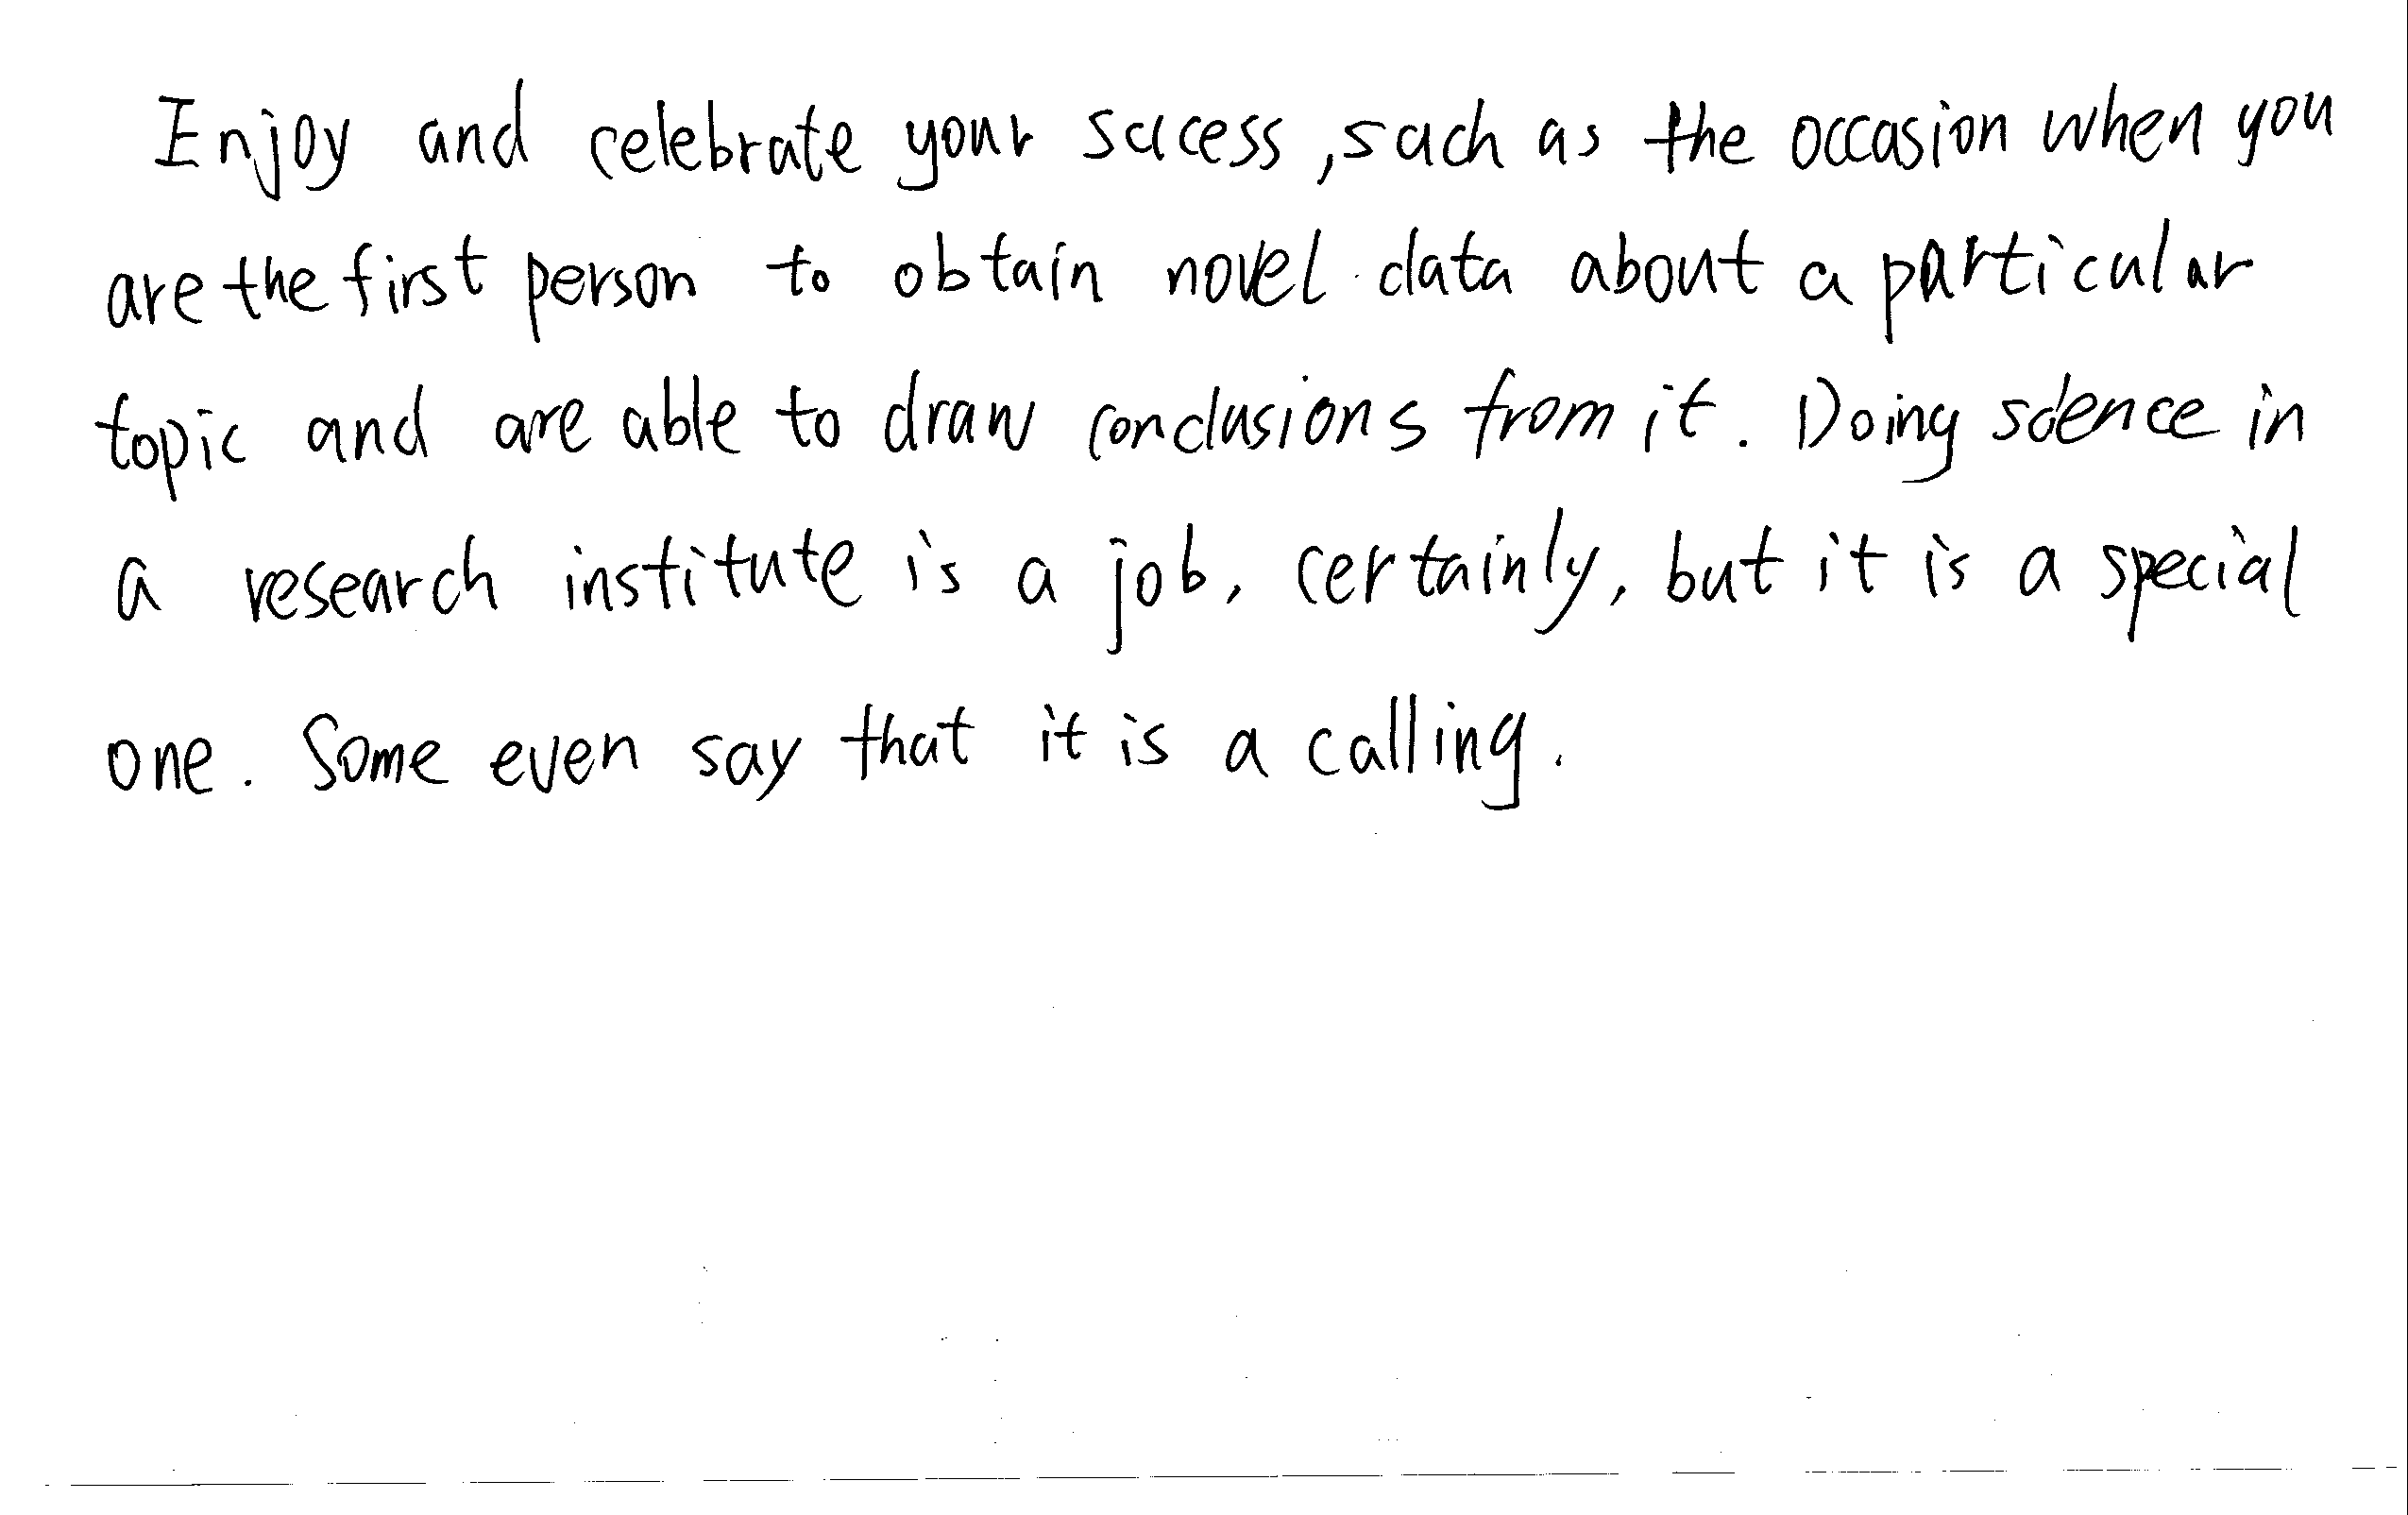 Enjoy and celebrate your sucess, such as the occasion when you
are the first person to obtain novel data about a particular
topic and are able to draw conclusions from it. Doing science in
a research institute is a job, certainly, but it is a special
one. Some even say that it is a calling.